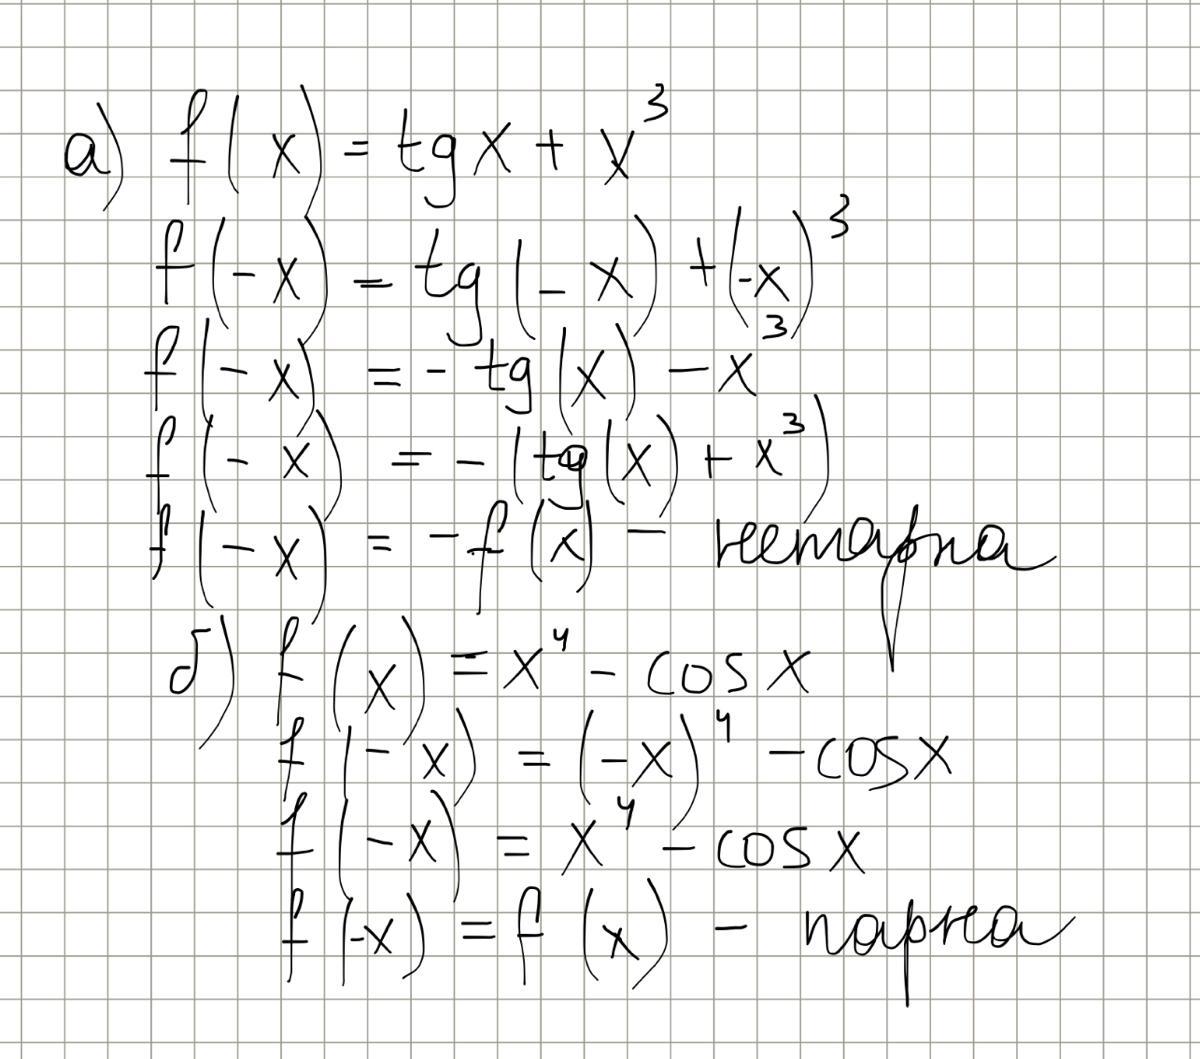 а) f(x) = tgx + x³
f(-x) = tg(-x) + (-x)³
f(-x) = - tg(x) - x³
f(-x) = - (tg(x) + x³)
f(-x) = -f(x) - непарна
б) f(x) = x⁴ - cosx
f(-x) = (-x)⁴ - cosx
f(-x) = x⁴ - cosx
f(-x) = f(x) - парна